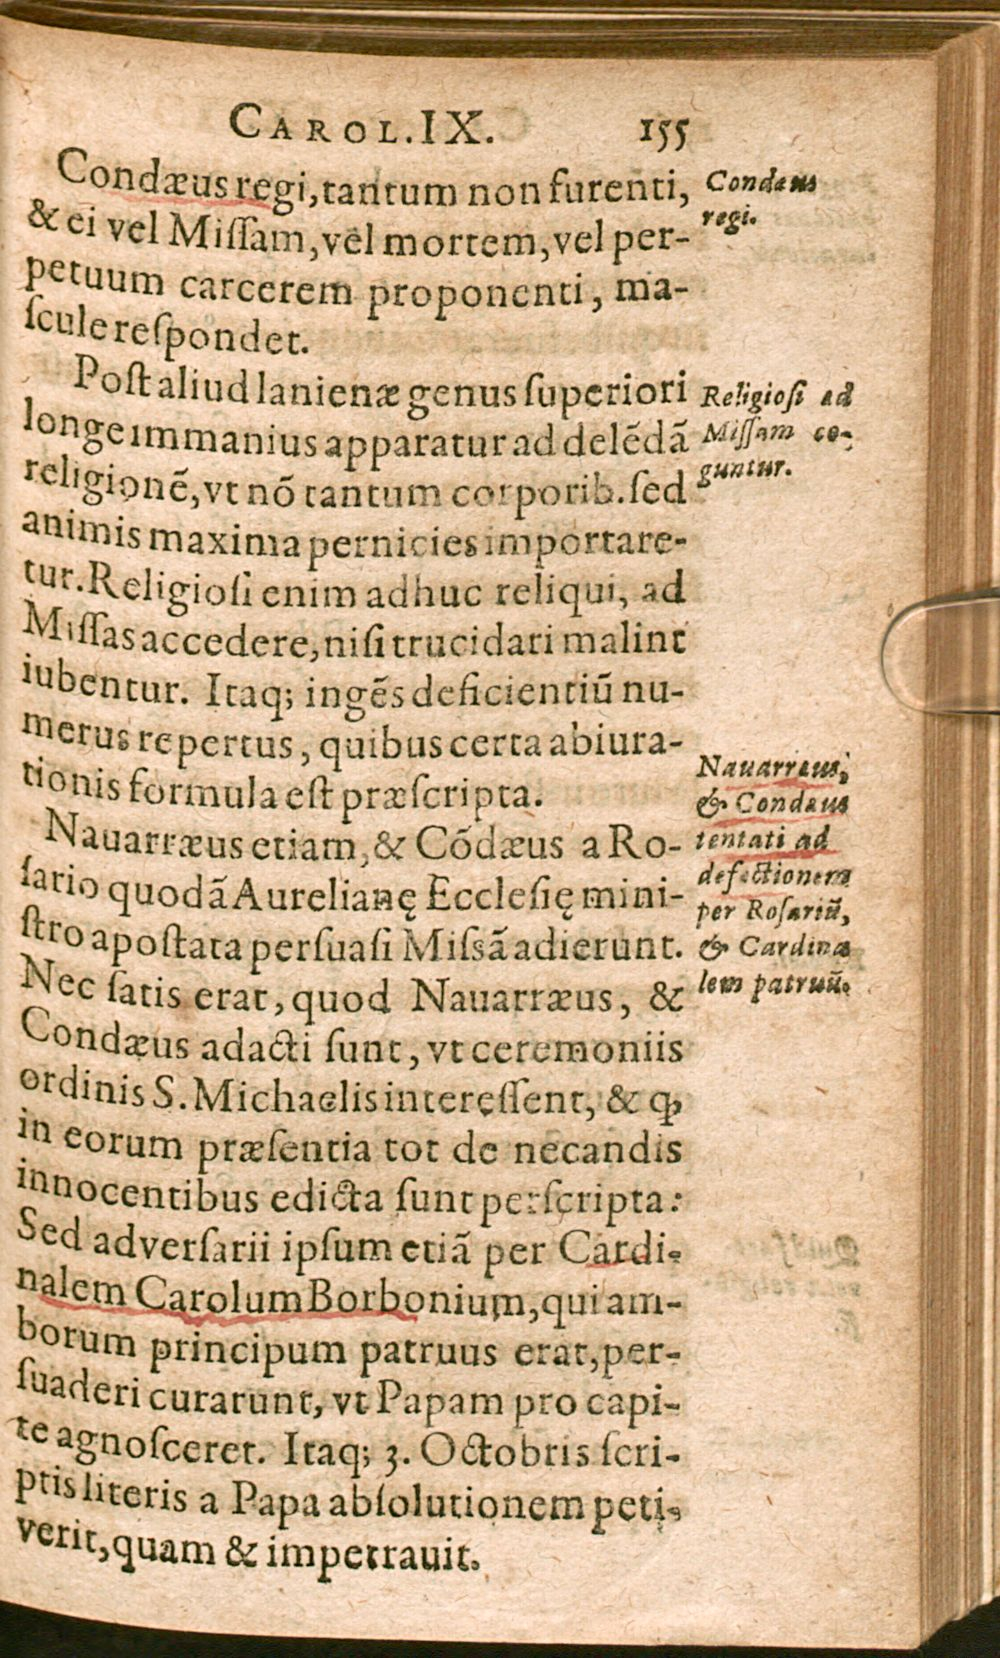 CAROL. IX. 155
Condæus regi, tantum non furenti,
& ei vel Miſſam, vel mortem, vel per-
petuum carcerem proponenti, ma-
ſcule reſpondet.
Poſt aliud lanienæ genus ſuperiori
longe immanius apparatur ad delēdā
religionē, vt nō tantum corporib. ſed
animis maxima pernicies importare-
tur. Religioſi enim adhuc reliqui, ad
Miſſas accedere, niſi trucidari malint
iubentur. Itaq; ingēs deficientiū nu-
merus repertus, quibus certa abiura-
tionis formula eſt præſcripta.
Nauarræus etiam, & Cōdæus a Ro-
ſario quodā Aurelianę Eccleſię mini-
ſtro apoſtata perſuaſi Miſsā adierunt.
Nec ſatis erat, quod Nauarræus, &
Condæus adacti ſunt, vt ceremoniis
ordinis S. Michaelis intereſſent, & ꝙ
in eorum præſentia tot de necandis
innocentibus edicta ſunt perſcripta:
Sed adverſarii ipſum etiā per Cardi-
nalem Carolum Borbonium, qui am-
borum principum patruus erat, per-
ſuaderi curarunt, vt Papam pro capi-
te agnoſceret. Itaq; 3. Octobris ſcri-
ptis literis a Papa abſolutionem peti-
verit, quam & impetrauit.
Condæus
regi.
Religioſi ad
Miſſam co-
guntur.
Nauarræus,
& Condæus
tentati ad
defectionem
per Roſariū,
& Cardina
lem patruū.